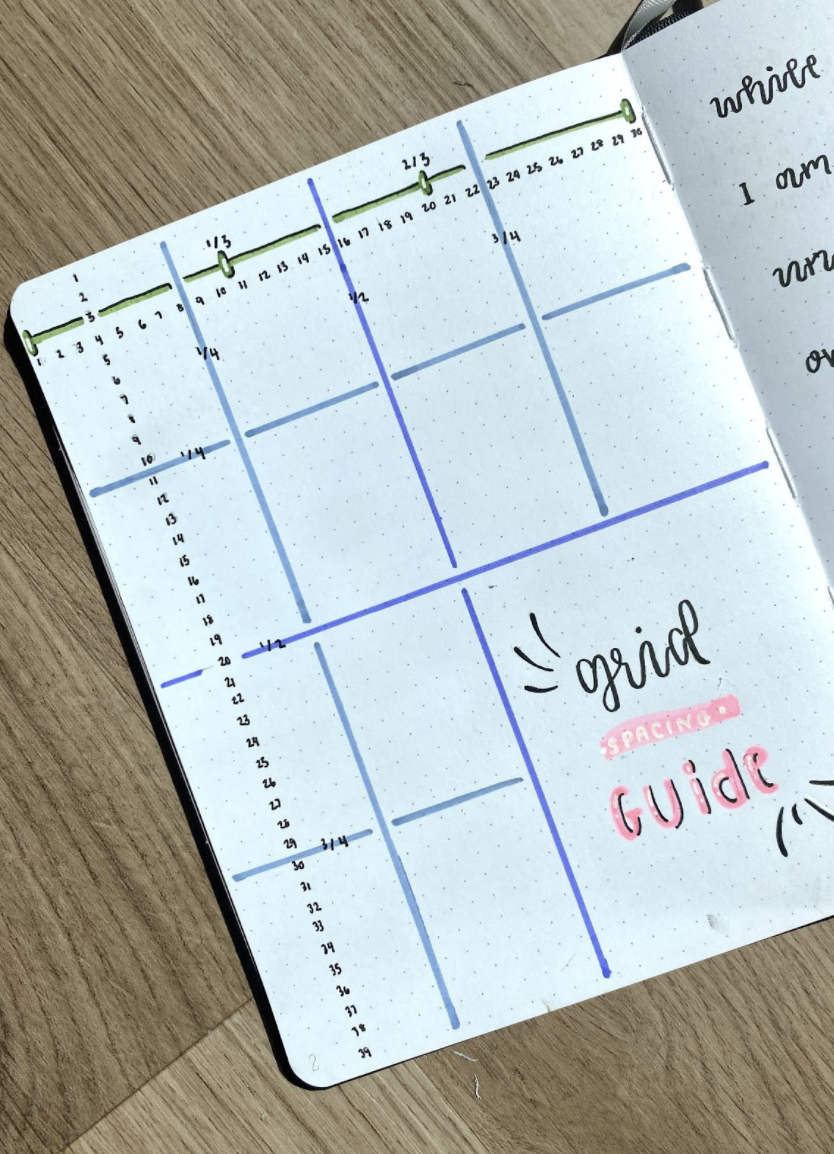 1/3
2/3
1 2 3 4 5 6 7 8 9 10 11 12 13 14 15 16 17 18 19 20 21 22 23 24 25 26 27 28 29 30
1/4
1/2
3/4
1
2
3
4
5
6
7
8
9
10
1/4
11
12
13
14
15
16
17
18
19
20
1/2
21
22
23
24
25
26
27
28
29
3/4
30
31
32
33
34
35
36
37
38
39
grid
SPACING
GUide
2
I am